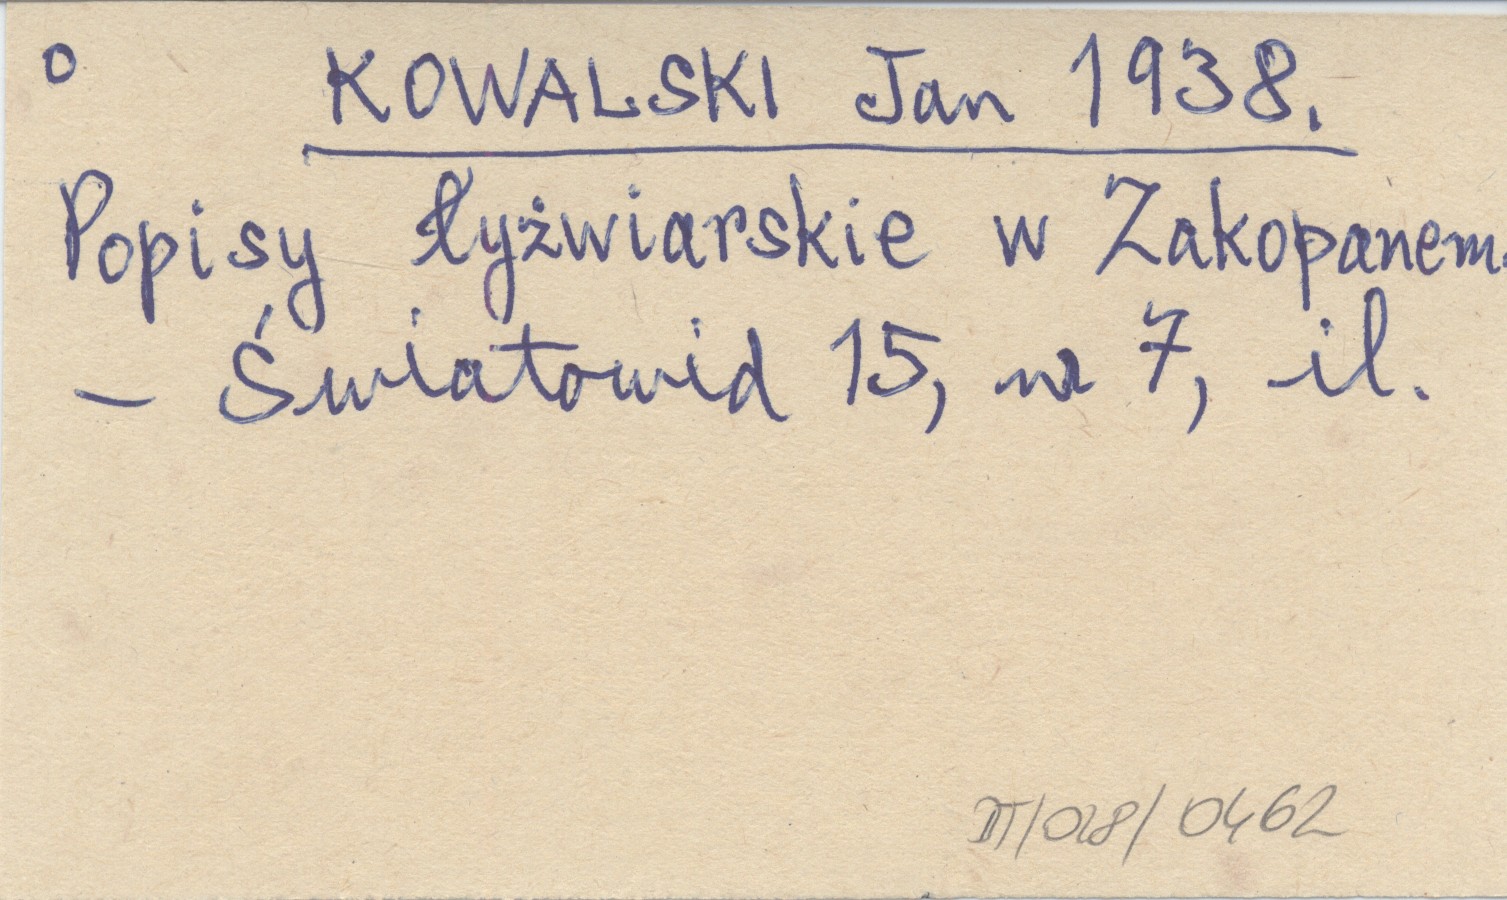 o KOWALSKI Jan 1938.
Popisy łyżwiarskie w Zakopanem.
– Światowid 15, nr 7, il.
DT/028/0462